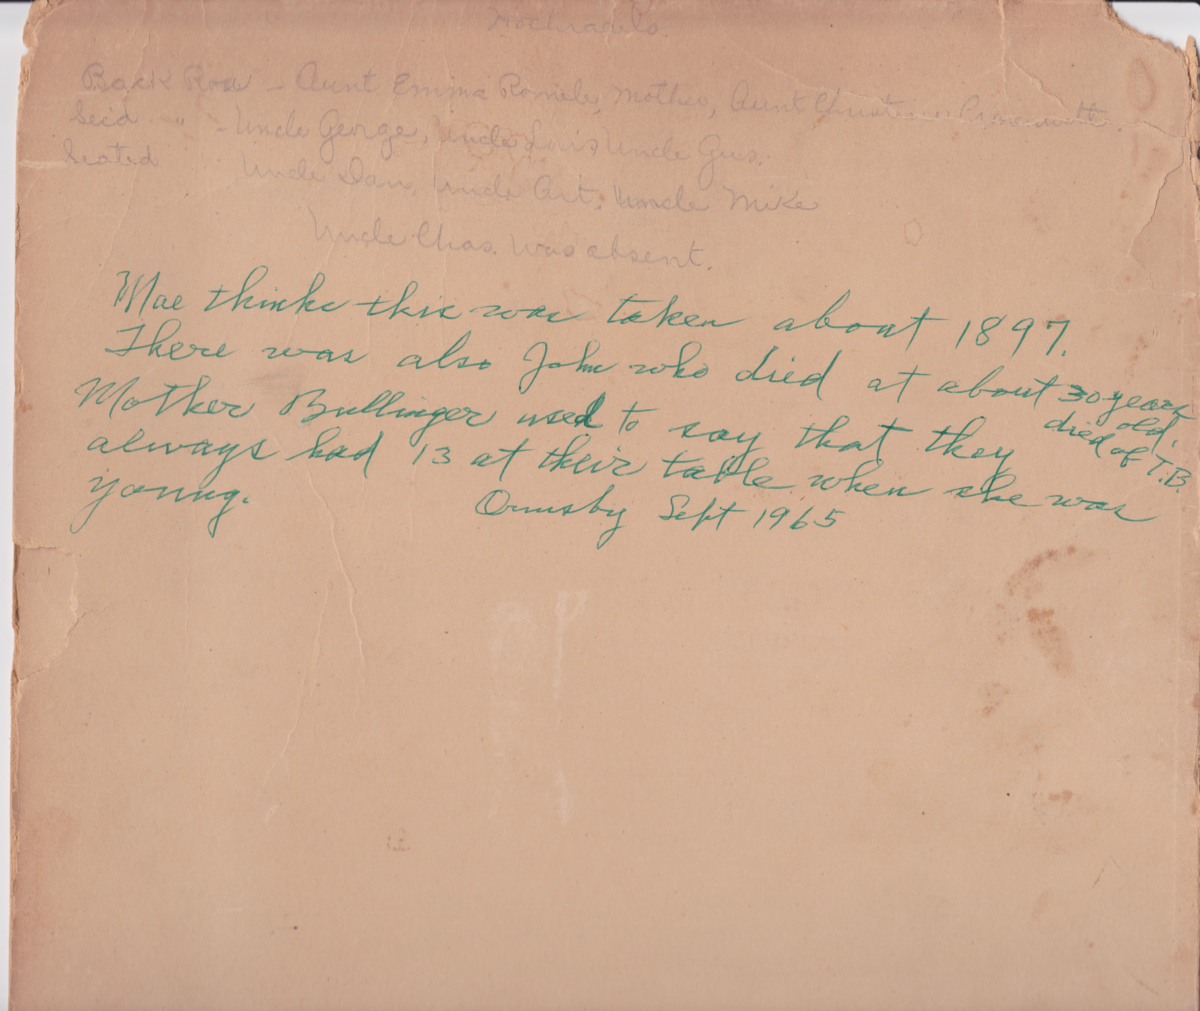 Back Row - Aunt Emma, Mother, Aunt
Sec'd " - Uncle George, Uncle Louis Uncle Gus.
Seated Uncle Dan, Uncle Art, Uncle Mike
Uncle Chas. was absent.
Mae thinks this was taken about 1897.
There was also John who died at about 30 years old.
died of T.B.
Mother Bullinger used to say that they
always had 13 at their table when she was
young.
Ormsby Sept 1965